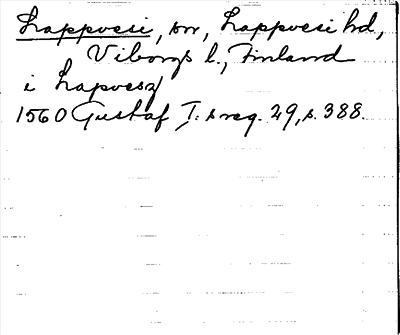 Lappvesi, sn, Lappvesi hd,
Viborgs l., Finland
i Lapvesz
1560 Gustaf I:s reg. 29, s. 388.